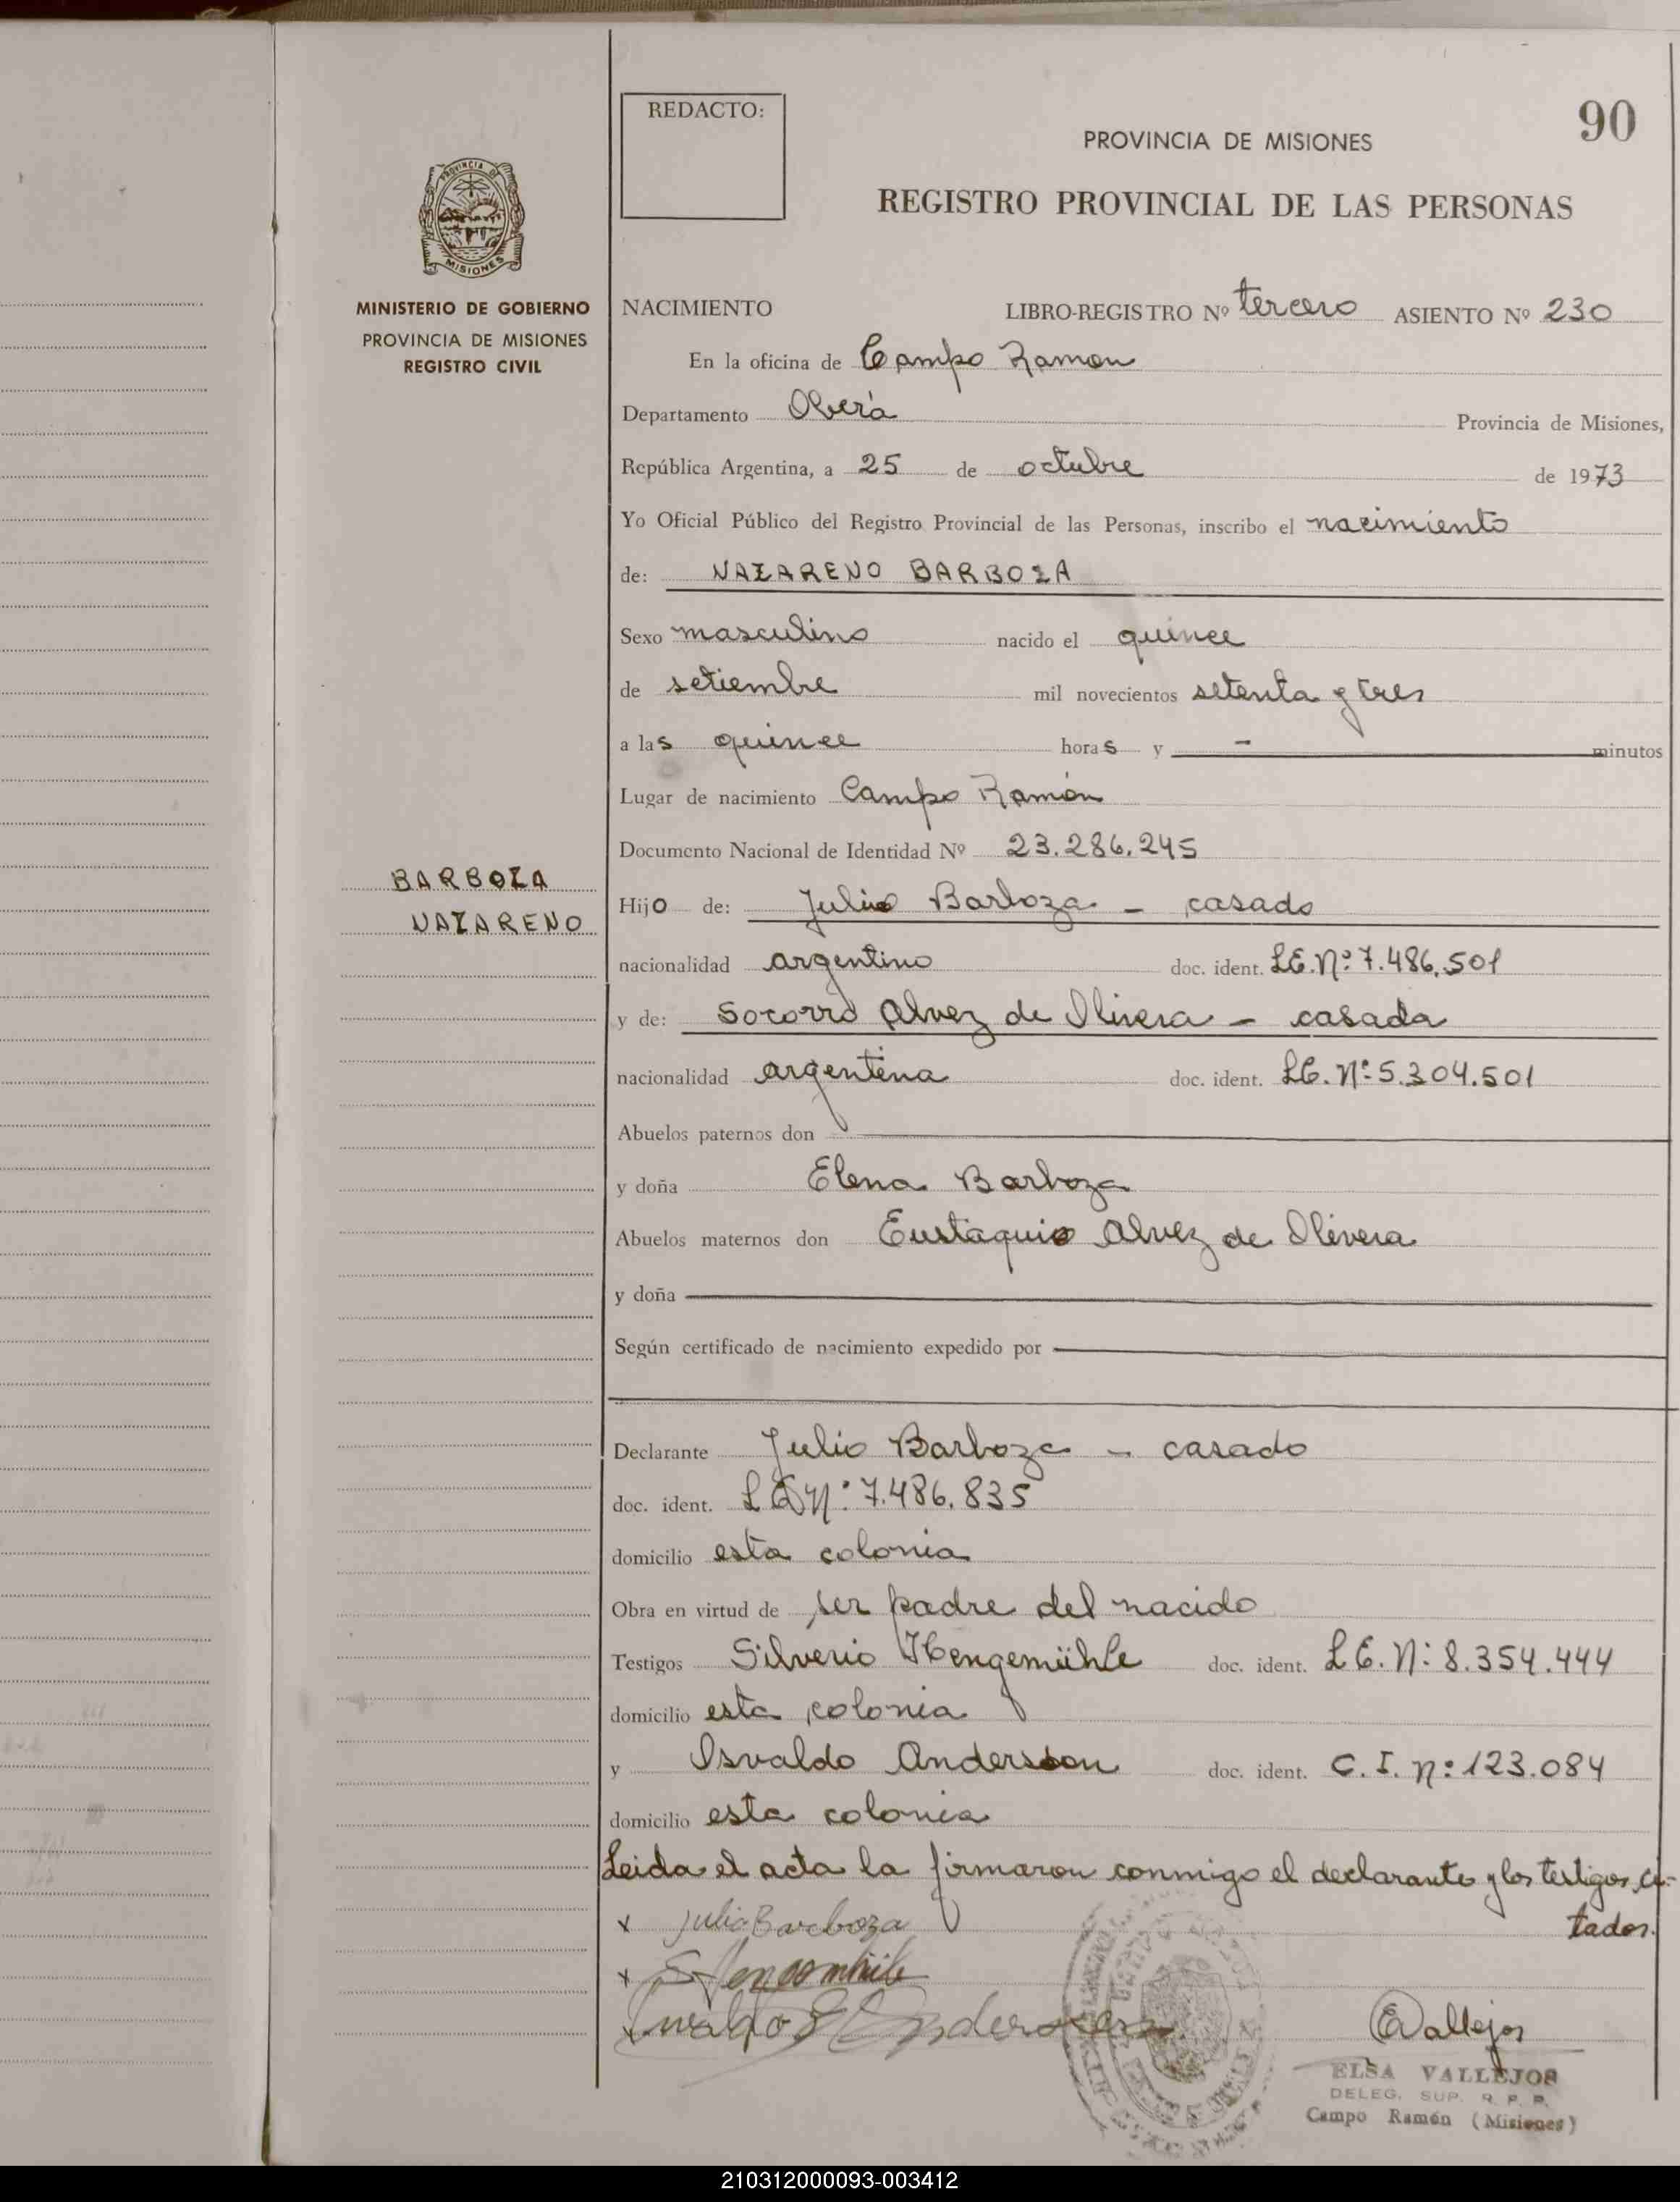 90
REDACTO:
PROVINCIA DE MISIONES
REGISTRO PROVINCIAL DE LAS PERSONAS
PROVINCIA DE
MISIONES
MINISTERIO DE GOBIERNO
PROVINCIA DE MISIONES
REGISTRO CIVIL
NACIMIENTO LIBRO-REGISTRO Nº tercero ASIENTO Nº 230
En la oficina de Campo Ramon
Departamento Oberá Provincia de Misiones,
República Argentina, a 25 de octubre de 1973
Yo Oficial Público del Registro Provincial de las Personas, inscribo el nacimiento
de: NAZARENO BARBOZA
Sexo masculino nacido el quince
de setiembre mil novecientos setenta y tres
a las quince horas y - minutos
Lugar de nacimiento Campo Ramón
Documento Nacional de Identidad Nº 23.286.245
BARBOZA
NAZARENO
Hijo de: Julio Barboza - casado
nacionalidad argentino doc. ident. L.E. Nº 7.486.501
y de: Socorro Alvez de Olivera - casada
nacionalidad argentina doc. ident. L.C. Nº 5.304.501
Abuelos paternos don
y doña Elena Barboza
Abuelos maternos don Eustaquio Alvez de Olivera
y doña
Según certificado de nacimiento expedido por
Declarante Julio Barboza - casado
doc. ident. L E Nº: 7.486.835
domicilio esta colonia
Obra en virtud de ser padre del nacido
Testigos Silverio Hengemühle doc. ident. L.E. N: 8.354.444
domicilio esta colonia
y Osvaldo Andersson doc. ident. C. I. nº: 123.084
domicilio esta colonia
Leida el acta la firmaron conmigo el declarante y los testigos ci-
tados.
x Julio Barboza
x
EVallejos
ELSA VALLEJOS
DELEG. SUP. R. P. P.
Campo Ramón (Misiones)
210312000093-003412